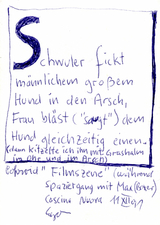 Schwuler fickt
männlichem großem
Hund in den Arsch,
Frau bläst ("saugt") dem
Hund gleichzeitig einen.
(dann kitzelte ich ihn mit Grashalm
in Ohr und im Arsch)
"Filmszene" (während
Spaziergang mit Max (Boxer)
Cascina Nuova 11 XII 91